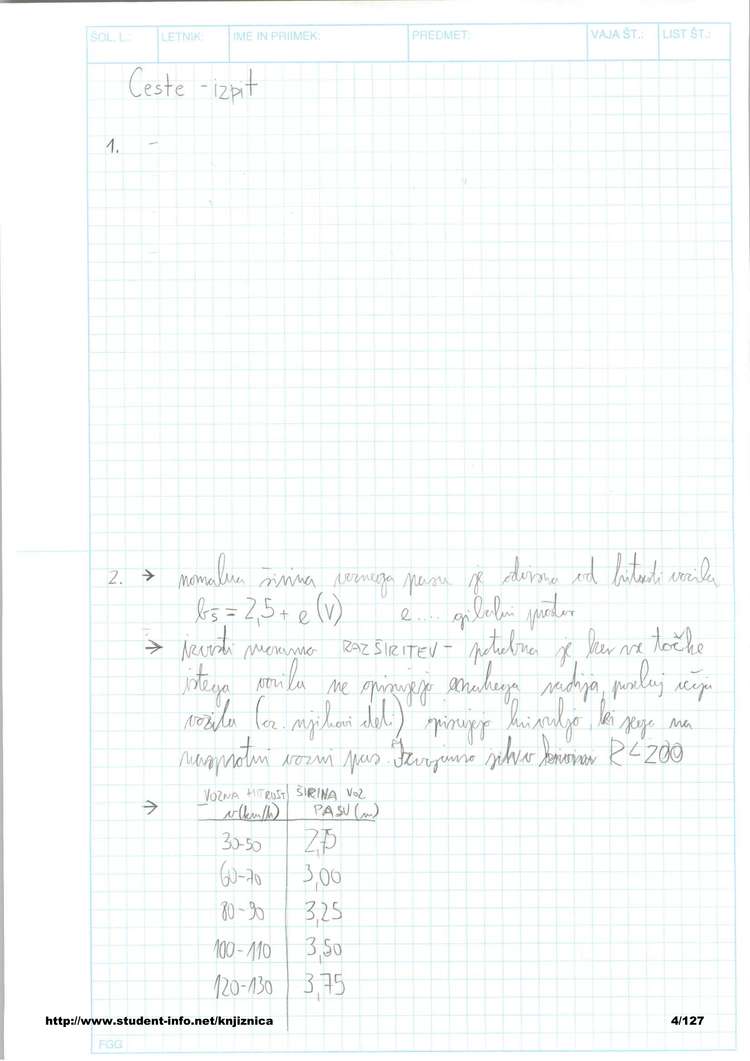 ŠOL. L.: LETNIK: IME IN PRIIMEK: PREDMET: VAJA ŠT.: LIST ŠT.:
Ceste - izpit
1. -
2. → normalna širina voznega pasu je odvisna od hitrosti vozila
bš = 2,5 + e (V) e.... gibalni prostor
→ Izvesti moramo RAZŠIRITEV - potrebna je ker vse točke
istega vozila ne opisujejo enakega radija, poslej večja
vozila (oz. njihovi deli) opisujejo krivuljo, ki sega na
nasprotni vozni pas. Izvajamo jih v krivinah R < 200
→ VOZNA HITROST ŠIRINA VOZ
v (km/h) PASU (m)
30-50 2,75
60-70 3,00
80-90 3,25
100-110 3,50
120-130 3,75
http://www.student-info.net/knjiznica 4/127
FGG